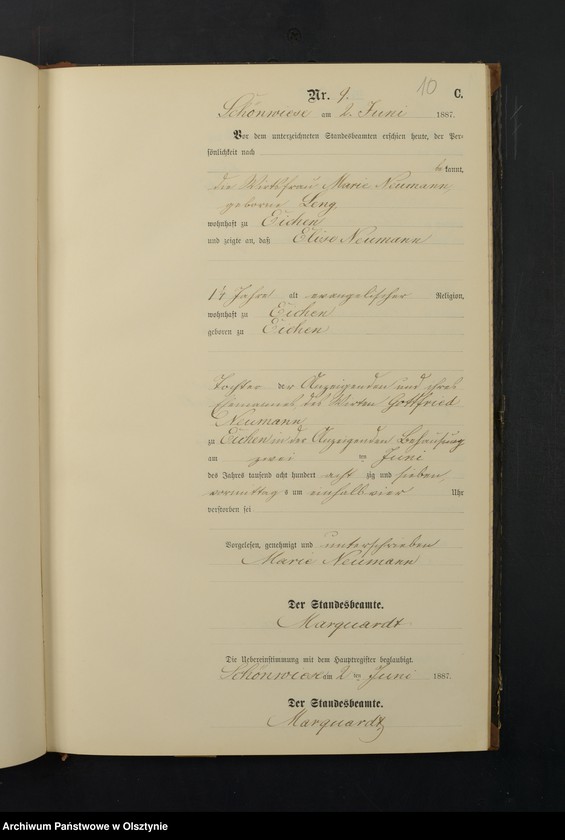 10
Nr. 9. C.
Schönwiese am 2. Juni 1887.
Vor dem unterzeichneten Standesbeamten erschien heute, der Per-
sönlichkeit nach
be kannt,
die Wirthsfrau Marie Neumann,
geborne Leng
wohnhaft zu Eichen
und zeigte an, daß Elise Neumann
1¼ Jahre alt evangelischer Religion,
wohnhaft zu Eichen
geboren zu Eichen
Tochter der Anzeigenden und ihres
Ehemannes des Wirten Gottfried
Neumann
zu Eichen in der Anzeigenden Behausung
am zwei ten Juni
des Jahres tausend acht hundert acht zig und sieben
vormittag s um einhalb vier Uhr
verstorben sei
Vorgelesen, genehmigt und unterschrieben
Marie Neumann
Der Standesbeamte.
Marquardt
Die Uebereinstimmung mit dem Hauptregister beglaubigt.
Schönwiese am 2 ten Juni 1887.
Der Standesbeamte.
Marquardt
Archiwum Państwowe w Olsztynie